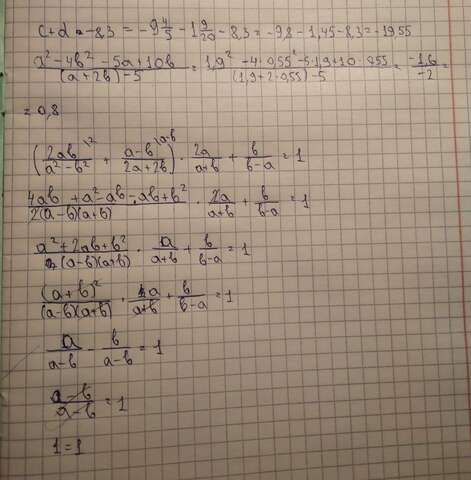 c+d-8,3 = -9 4/5 - 1 9/20 - 8,3 = -9,8 - 1,45 - 8,3 = -19,55
(a² - 4b² - 5a + 10b)/((a+2b) - 5) = (1,9² - 4·0,55² - 5·1,9 + 10·0,55)/((1,9 + 2·0,55) - 5) = (-1,6)/(-2) =
= 0,8
(2ab/(a² - b²) \2 + (a-b)/(2a+2b) \a-b) · 2a/(a+b) + b/(b-a) = 1
(4ab + a² - ab - ab + b²)/(2(a-b)(a+b)) · 2a/(a+b) + b/(b-a) = 1
(a² + 2ab + b²)/((a-b)(a+b)) · a/(a+b) + b/(b-a) = 1
(a+b)²/((a-b)(a+b)) · a/(a+b) + b/(b-a) = 1
a/(a-b) - b/(a-b) = 1
(a-b)/(a-b) = 1
1 = 1